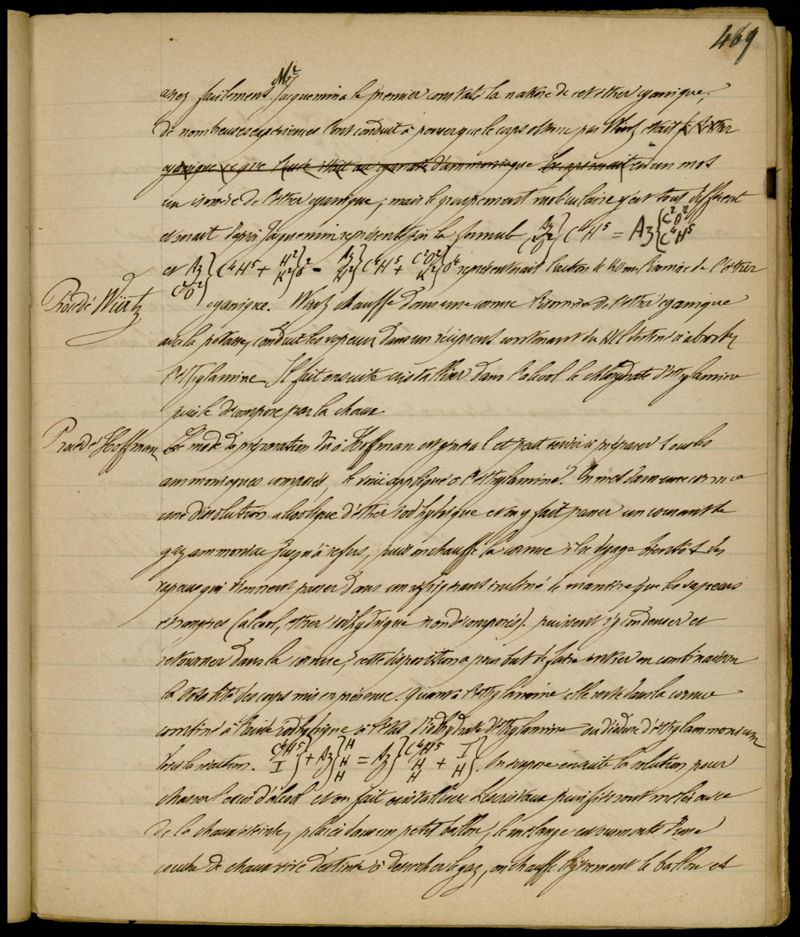 469
assez facilement. Mr Jacquemin a le premier constaté la nature de cet éther cyanique,
de nombreuses expériences l'ont conduit à penser que le corps obtenu par Wurtz était l'éther
cyanique d'ammoniaque en un mot
un isomère de l'éther cyanique, mais le groupement moléculaire y est tout différent
et serait d'après Jacquemin représenté par la formule Az C²O² } C⁴H⁵ = Az { C²O² C⁴H⁵
et Az C²O² } C⁴H⁵ + H² K² } O² = Az H² } C⁴H⁵ + C²O² K² } O⁴ représenterait l'action de l'isomère de l'éther
Procédé Wurtz
cyanique. Wurtz chauffe dans une cornue l'isomère de l'éther cyanique
avec la potasse, conduit les vapeurs dans un récipient contenant du HCl destiné à absorber
l'éthylamine. Il fait ensuite cristalliser dans l'alcool le chlorhydrate d'éthylamine
puis le décompose par la chaux
Procédé Hoffman
Le mode de préparation dû à Hoffman est général et peut servir à préparer tous les
ammoniaques composés, le voici appliqué à l'éthylamine. On met dans une cornue
une dissolution alcoolique d'éther iodhydrique et on y fait passer un courant de
gaz ammoniac jusqu'à refus, puis on chauffe la cornue, il se dégage bientôt des
vapeurs qui viennent passer dans un réfrigérant incliné de manière que les vapeurs
étrangères (alcool, éther iodhydrique non décomposés) puissent s'y condenser et
retourner dans la cornue, cette disposition a pour but de faire entrer en combinaison
la totalité des corps mis en présence. Quant à l'éthylamine elle reste dans la cornue
combiné à l'acide iodhydrique à l'état d'iodhydrate d'éthylamine ou d'iodure d'éthylammonium
dans la réaction. C⁴H⁵ I } + Az { H H H = Az { C⁴H⁵ H H + I H }. On évapore ensuite la solution pour
chasser l'excès d'alcool et on fait cristalliser. Les cristaux purifiés sont mêlés avec
de la chaux éteinte, placés dans un petit ballon, le mélange est surmonté d'une
couche de chaux vive destinée à dessécher le gaz, on chauffe légèrement le ballon et